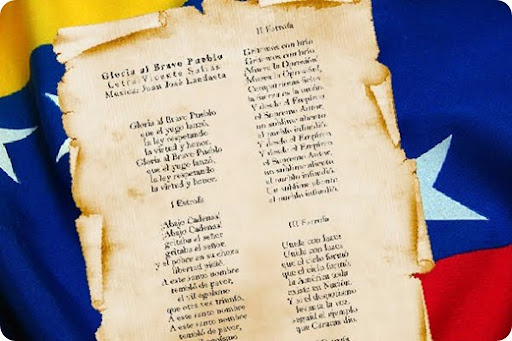 Gloria al Bravo Pueblo
Letra: Vicente Salias
Música: Juan José Landaeta
Gloria al Bravo Pueblo
que el yugo lanzó,
la ley respetando
la virtud y honor.
Gloria al Bravo Pueblo
que el yugo lanzó,
la ley respetando
la virtud y honor.
I Estrofa
¡Abajo Cadenas!
¡Abajo Cadenas!
gritaba el señor
gritaba el señor,
y el pobre en su choza
libertad pidió.
A este santo nombre
tembló de pavor,
el vil egoísmo
que otra vez triunfó.
A este santo nombre
tembló de pavor,
egoísmo
II Estrofa
Gritemos con brío
Gritemos con brío
Muera la Opresión!
Muera la Opresión!,
Compatriotas fieles
la fuerza es la unión.
Y desde el Empíreo
el Supremo Autor,
un sublime aliento
al pueblo infundió.
Y desde el Empíreo
el Supremo Autor,
Un sublime aliento
al pueblo infundió.
III Estrofa
Unida con lazos
que el cielo formó
que el cielo formó,
la América toda
existe en Nación.
Y si el despotismo
levanta la voz,
seguid el ejemplo
que Caracas dio.